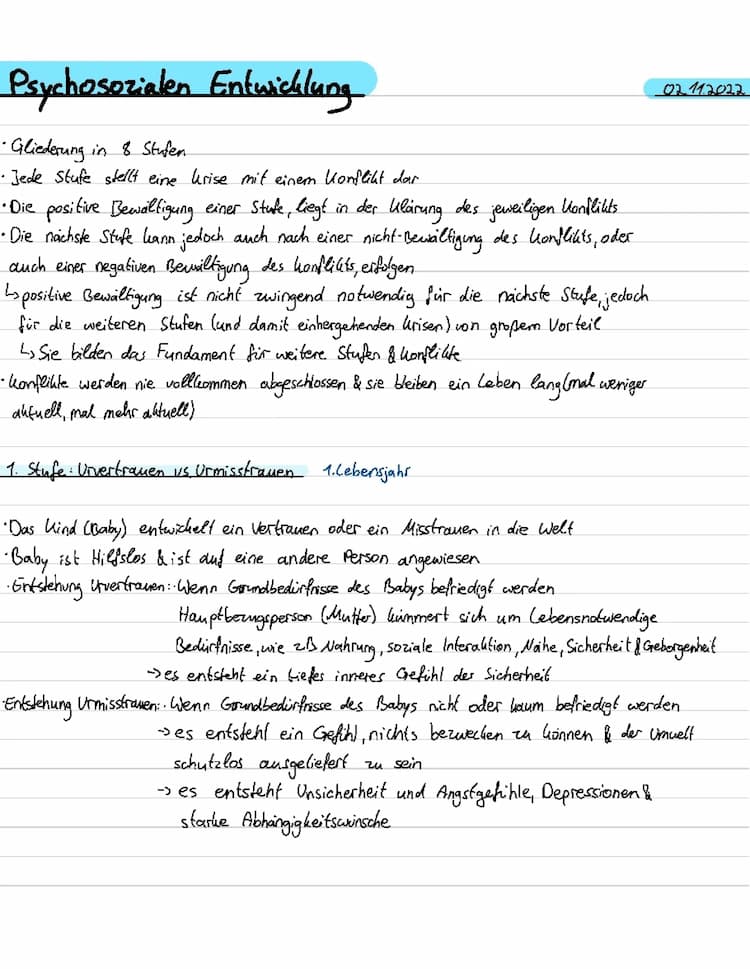 Psychosozialen Entwicklung
02.11.2022
· Gliederung in 8 Stufen
· Jede Stufe stellt eine Krise mit einem Konflikt dar
· Die positive Bewältigung einer Stufe, liegt in der Klärung des jeweiligen Konflikts
· Die nächste Stufe kann jedoch auch nach einer nicht-Bewältigung des Konflikts, oder
auch einer negativen Bewältigung des Konflikts, erfolgen
↳ positive Bewältigung ist nicht zwingend notwendig für die nächste Stufe, jedoch
für die weiteren Stufen (und damit einhergehenden Krisen) von großem Vorteil
↳ Sie bilden das Fundament für weitere Stufen & Konflikte
· Konflikte werden nie vollkommen abgeschlossen & sie bleiben ein Leben lang (mal weniger
aktuell, mal mehr aktuell)
1. Stufe: Urvertrauen vs. Urmisstrauen 1. Lebensjahr
· Das Kind (Baby) entwickelt ein Vertrauen oder ein Misstrauen in die Welt
· Baby ist Hilfslos & ist auf eine andere Person angewiesen
· Entstehung Urvertrauen: · Wenn Grundbedürfnisse des Babys befriedigt werden
Hauptbezugsperson (Mutter) kümmert sich um Lebensnotwendige
Bedürfnisse, wie zB Nahrung, soziale Interaktion, Nähe, Sicherheit & Geborgenheit
-> es entsteht ein tiefes inneres Gefühl der Sicherheit
· Entstehung Urmisstrauen: · Wenn Grundbedürfnisse des Babys nicht oder kaum befriedigt werden
-> es entsteht ein Gefühl, nichts bezwecken zu können & der Umwelt
schutzlos ausgeliefert zu sein
-> es entsteht Unsicherheit und Angstgefühle, Depressionen &
starke Abhängigkeitswünsche